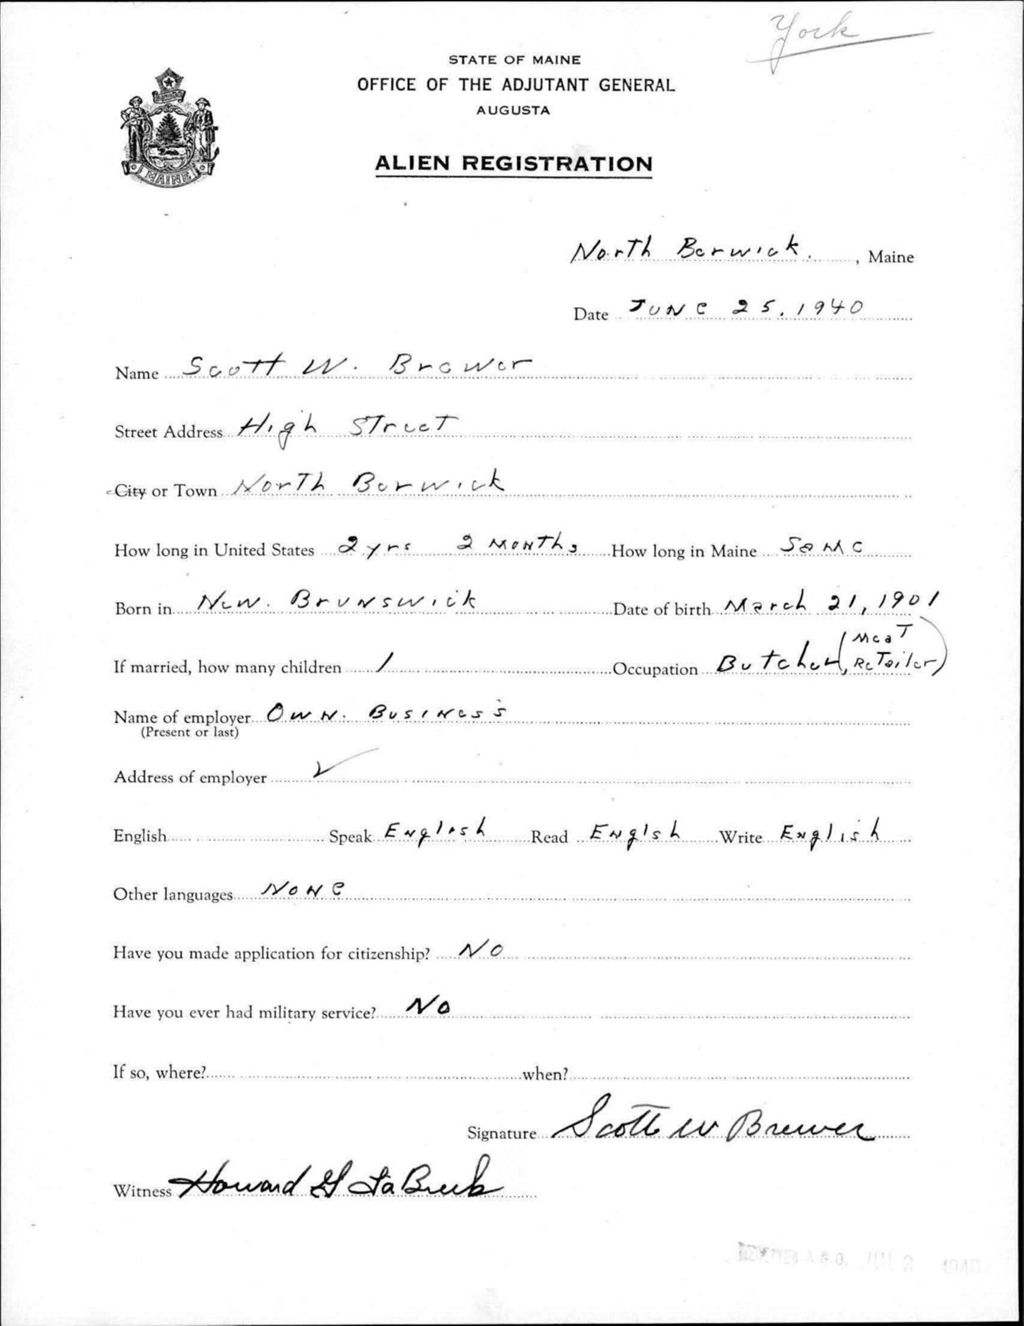 York
STATE OF MAINE
OFFICE OF THE ADJUTANT GENERAL
AUGUSTA
ALIEN REGISTRATION
MAINE
North Berwick, Maine
Date June 25, 1940
Name Scott W. Brewer
Street Address High Street
City or Town North Berwick
How long in United States 2 yrs 2 Months How long in Maine Same
Born in New Brunswick Date of birth March 21, 1901
If married, how many children 1 Occupation Butcher (Meat Retailer)
Name of employer Own Business
(Present or last)
Address of employer ✓
English Speak English Read Englsh Write English
Other languages None
Have you made application for citizenship? No
Have you ever had military service? No
If so, where? when?
Signature Scott W Brewer
Witness Howard G
1940